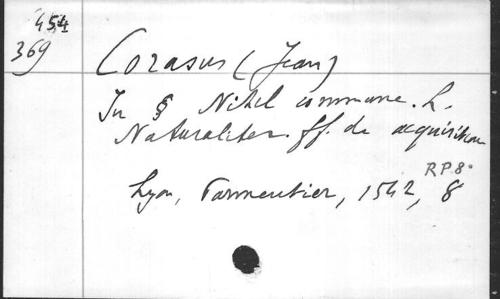 454
369
Corasus (Jean)
In § Nihil commune. L.
Naturaliter. ff. de acquisition
RP.8°
Lyon, Parmentier, 1542, 8°